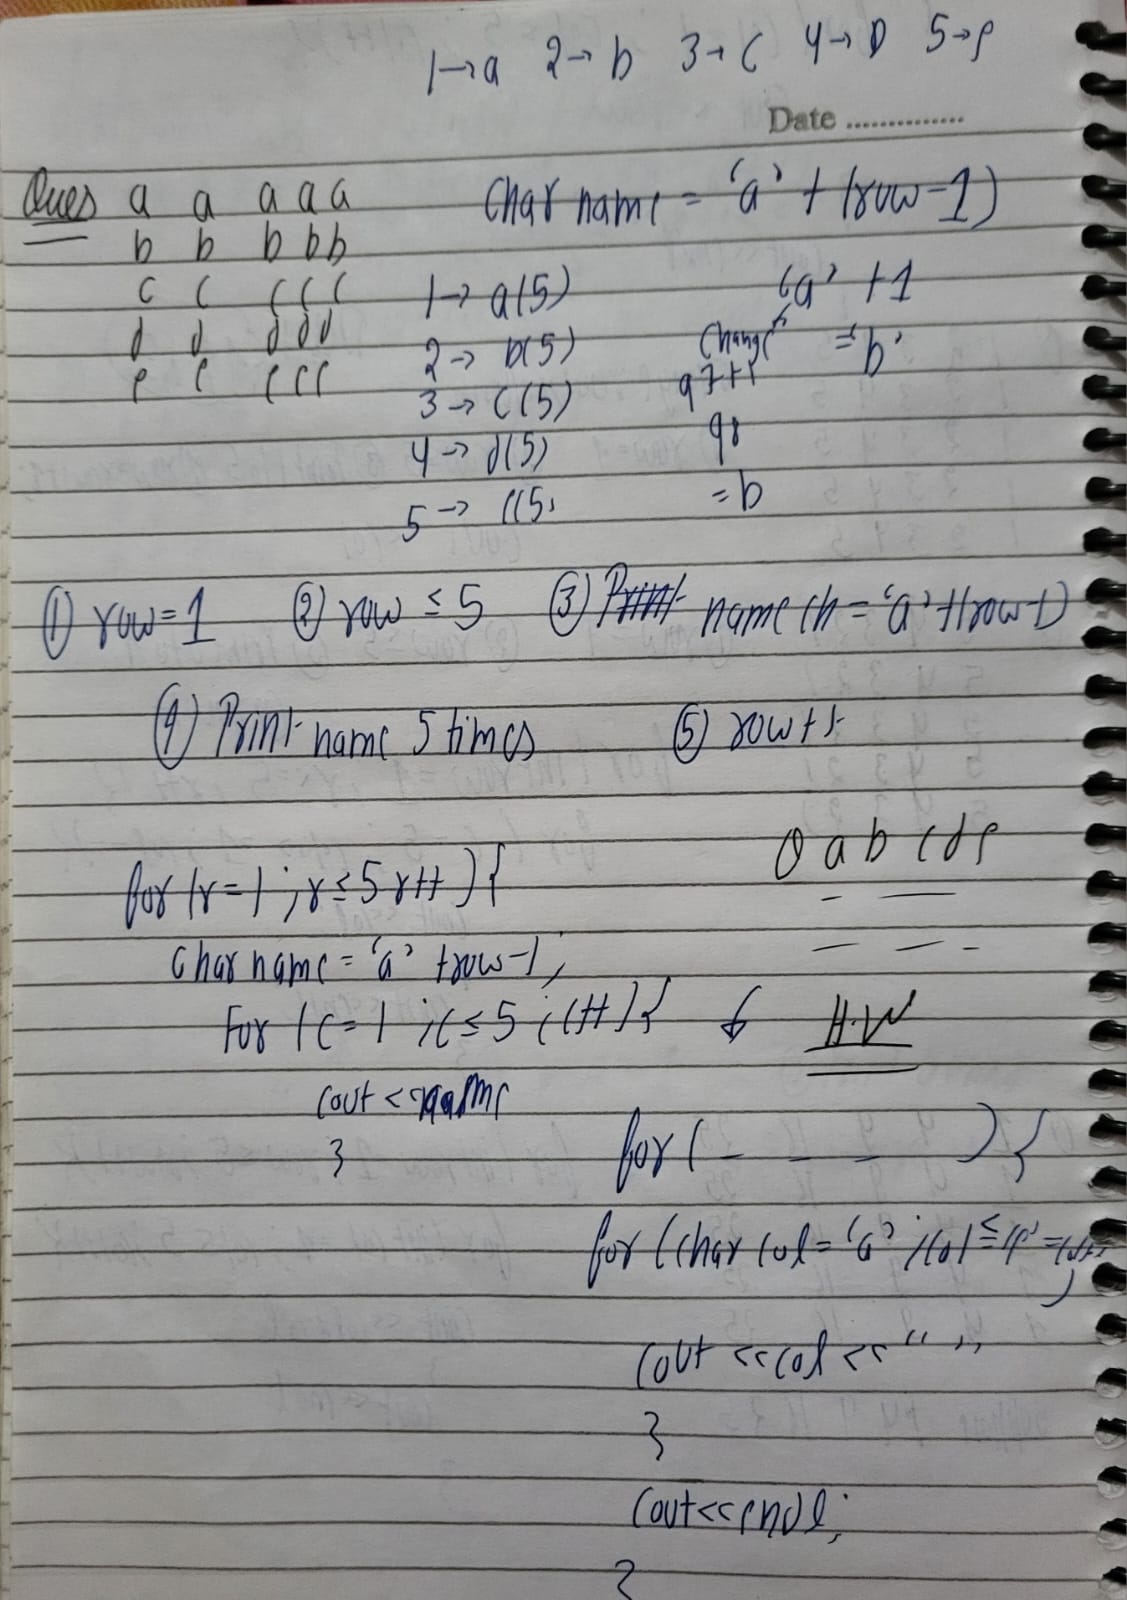 1→a 2→b 3→c 4→D 5→e
Date ..............
Ques a a a a a
b b b b b
c c c c c
d d d d d
e e e e e
Char name = 'a' + (row-1)
1→ a(5)
2→ b(5)
3→ c(5)
4→ d(5)
5→ e(5)
'a' + 1
change = 'b'
97+1
98
= b
① row=1 ② row ≤ 5 ③ name ch = 'a' + (row-1)
④ Print name 5 times ⑤ row++
for (r=1 ; r≤5 r++) {
char name = 'a' +row-1;
For (c=1 ; c≤5 ; c++) {
cout << name
}
Q a b c d e
– — —
— — -
↓ H.W
for ( – – – ) {
for (char col = 'a' ; col ≤
cout << col << " "
}
cout<<endl;
}